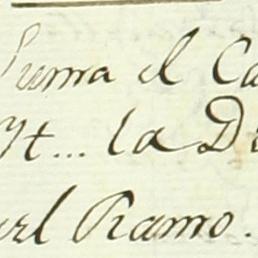 Suma el Ca
Yt... la D
del Ramo.